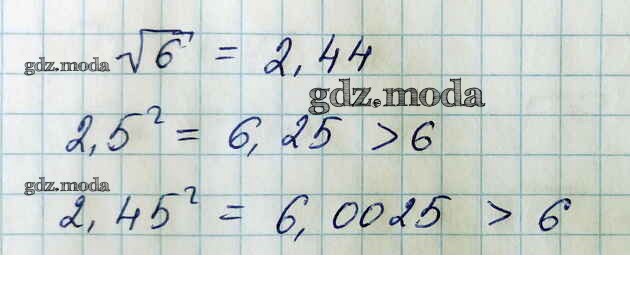 √6 = 2,44
gdz.moda
gdz.moda
2,5² = 6,25 > 6
gdz.moda
2,45² = 6,0025 > 6